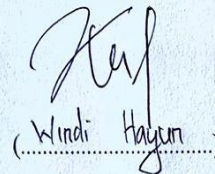 ( Windi Hayun